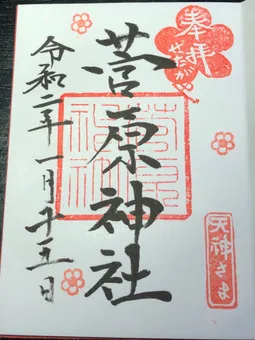 奉拝
せたがや
菅原神社
天神さま
令和二年一月十五日